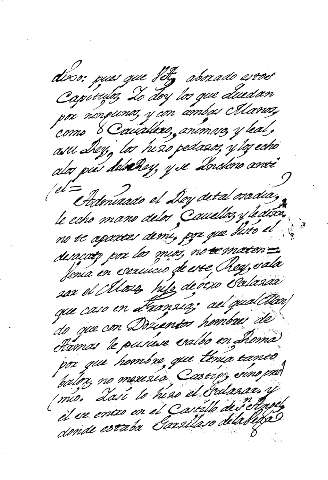 dixo: pues que V.A. abonado estos
Capitulos, Yo doy los que quedan
por ningunos, y con ambas Manos,
como Cauallero, animoso, y leal,
a su Rey, los hizo pedazos, y los echo
a los pies del Rey, y se Inclino ante
el =
Admirado el Rey de tal osadia,
le echo mano de los Cauellos, y le dixo,
no te apartes de mi, por que visto el
desacato, por los mios, no te maten =
Tenia en seruicio de este Rey, sala
zar el Mozo, hijo de otro Salazar
que caso en Francia: a el qual Man
do que con Dozientos hombres de
Armas le pusiese en Roma
por que hombre, que tenia tanto
balor, no merezia Castigo, sino pre
mio. Y asi lo hizo el Salazar, y
el se entro en el Castillo de St. Angel,
donde estaba Garzilaso de la Vega